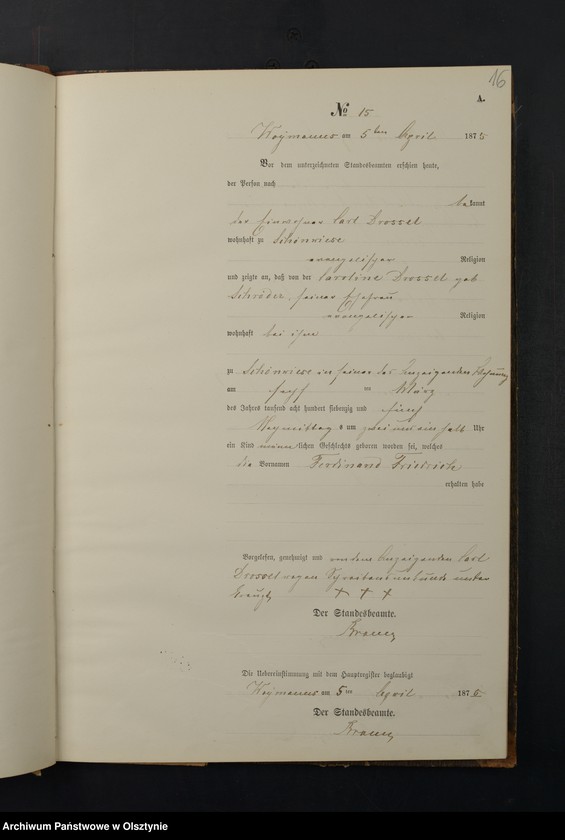 16
A.
№ 15
am 5ten April 1875
Vor dem unterzeichneten Standesbeamten erschien heute,
der Person nach
bekannt
der Einwohner Carl Drossel
wohnhaft zu Schönwiese
evangelischer Religion
und zeigte an, daß von der Caroline Drossel geb.
Schröder, seiner Ehefrau
evangelischer Religion
wohnhaft bei ihm
zu Schönwiese in seiner des Anzeigenden Wohnung
am ten März
des Jahres tausend acht hundert siebenzig und fünf
mittags um zwei und ein halb Uhr
ein Kind männlichen Geschlechts geboren worden sei, welches
die Vornamen Ferdinand Friedrich
erhalten habe
Vorgelesen, genehmigt und von dem Anzeigenden Carl
Drossel wegen Schreibensunkunde unter
kreuzt + + +
Der Standesbeamte.
Die Uebereinstimmung mit dem Hauptregister beglaubigt
am 5ten April 1875
Der Standesbeamte.
Archiwum Państwowe w Olsztynie